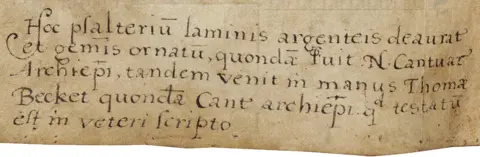 Hoc psalteriū laminis argenteis deaurat
et gemis ornatū, quondā fuit N. Cantuar
Archiepi, tandem venit in manus Thomæ
Becket quondā Cant archiepi. qd testatū
est in veteri scripto